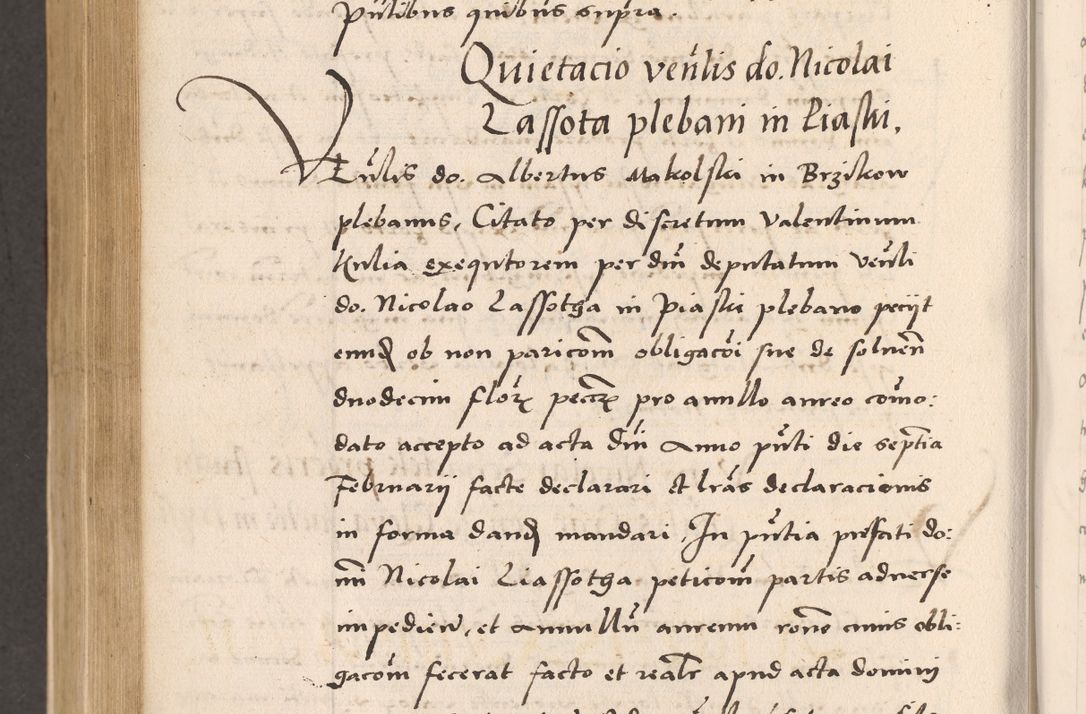 pñtibus quibus supra.
Quietacio veñlis do. Nicolai
Lassota plebani in Piaski.
Veñlis do. Albertus Makolski in Brziskow
plebanus, Citato per discretum Valentinum
Kulia exequtorem per dm̃ deputatum veñli
do. Nicolao Lassotha in Piaski plebano peciit
eund ob non paricom̃ obligacõi sue de solueñ
duodecim florꝝ pecc̃ꝝ pro anullo aureo com̃o:
dato accepto ad acta dm̃ Anno pñti die septĩa
Februarii facte declarari et lrãs declaracionis
in forma dand mandari. In pñtia prefati do:
mi Nicolai Liassotha peticom̃ partis aduerse
impedien, et Anullũ aureum rone cuius obli:
gacom̃ fecerat facto et realr apud acta domini